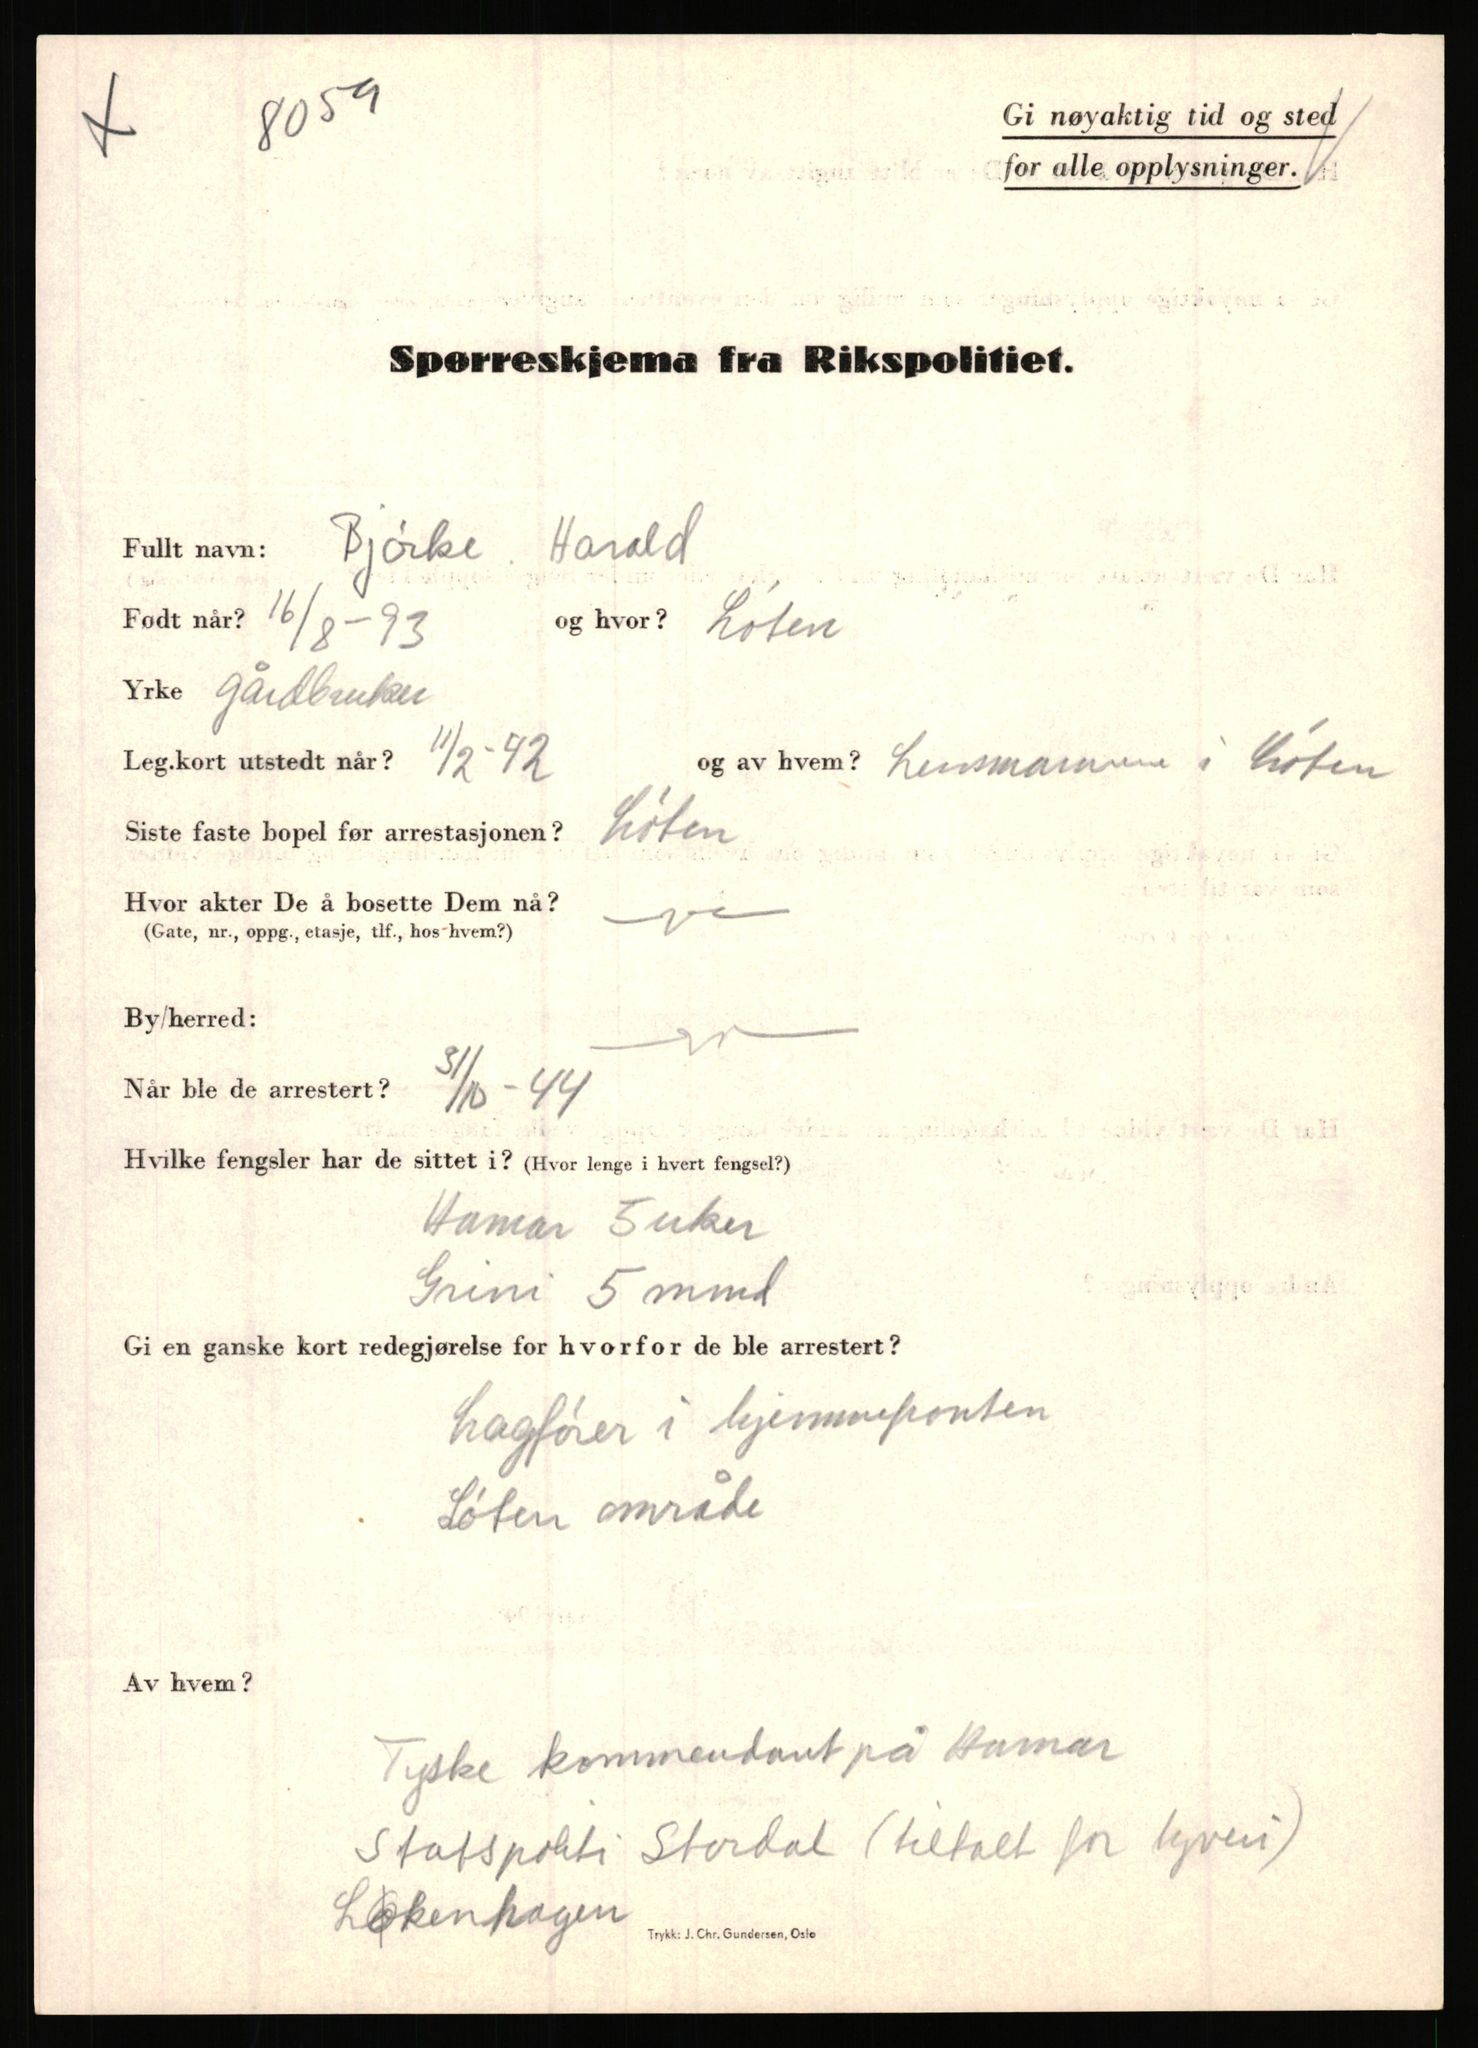 8059
Gi nøyaktig tid og sted
for alle opplysninger.
Spørreskjema fra Rikspolitiet.
Fullt navn: Bjórke Harald
Født når? 16/8-93 og hvor? Lóten
Yrke gårdbruker
Leg.kort utstedt når? 11/2-42 og av hvem? Lensmannen i Lóten
Siste faste bopel før arrestasjonen? Lóten
Hvor akter De å bosette Dem nå?
(Gate, nr., oppg., etasje, tlf., hos hvem?)
By/herred:
Når ble de arrestert? 31/10-44
Hvilke fengsler har de sittet i? (Hvor lenge i hvert fengsel?)
Hamar 5 uker
Grini 5 mnd
Gi en ganske kort redegjørelse for hvorfor de ble arrestert?
Lagfórer i hjemmefronten
Lóten område
Av hvem?
Tyske kommendant på Hamar
Statspoliti Stordal (tiltalt for tyveri)
Lökenhagen
Trykk: J. Chr. Gundersen, Oslo